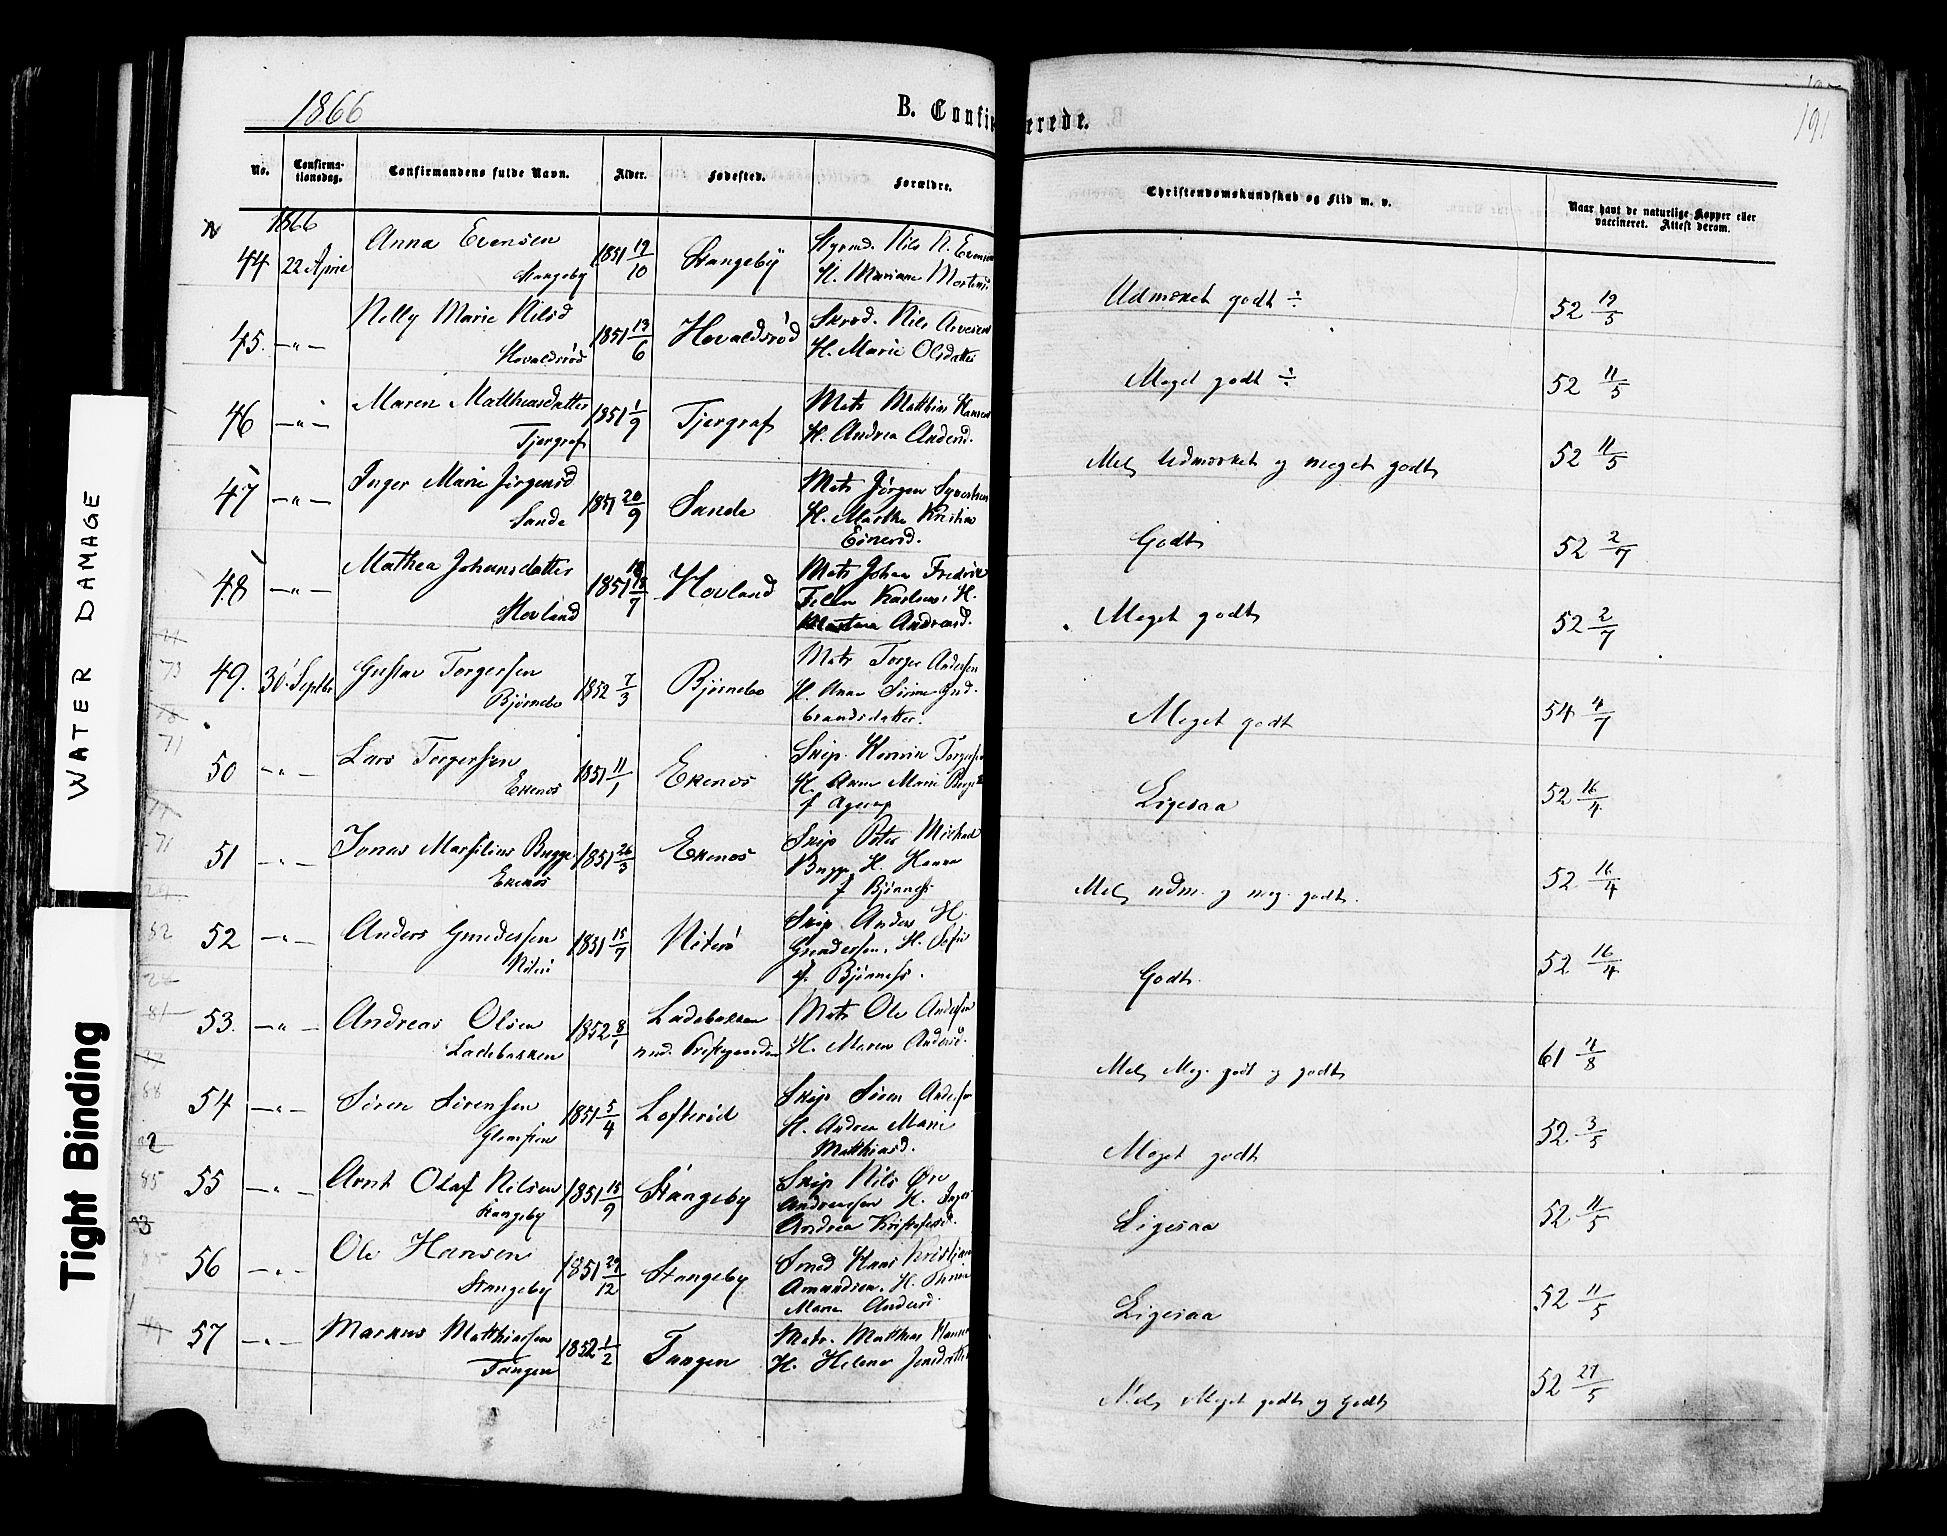 WATER DAMAGE
Tight Binding
1866
B. Confirmerede.
191
No.
Confirmationsdag.
Confirmandens fulde Navn.
Alder.
Fødested.
Forældre.
Christendomskundskab og Flid m. v.
Naar havt de naturlige Kopper eller vaccineret. Attest derom.
1866
44 22 April Anna Evensen 1851 19/10 Stangeby Styrmd. Nils N. Evensen
Stangeby H. Mariane
Udmærket godt ÷ 52 19/5
45. —„— Nelly Marie Nilsd 1851 13/6 Hovaldsrød Nils
Hovaldsrød H. Marie Olsdatter
Meget godt ÷ 52 11/5
46 —„— Maren Matthiasdatter 1851 1/9 Tjergraf Mats Matthias Hansen
Tjergraf H. Andrea Andersd.
Mel, Udmærket og meget godt 52 11/5
47 —„— Inger Marie Jørgensd 1851 20/9 Sande Mats Jørgen Syvertsen
Sande H. Marthe Kristine
Einersd.
Godt 52 2/7
48 —„— Mathea Johansdatter 1851 18/7 Hovland Mats Johan Fredrik
Hovland Karlsen, H.
Andreasd.
Meget godt 52 2/7
49. 30 Septbr Gustav Torgersen 1852 7/3 Bjørnebo Mats Torger Andersen
Bjørnebo H. Anne Sirine Gud-
brandsdatter.
Meget godt 54 4/7
50 —„— Lars Torgersen 1851 11/1 Ekenes Skip. Torgersen
Ekenes H. Anne Marie
f
Ligesaa 52 16/4
51 —„— Jonas Marsilius Bugge 1851 26/3 Ekenes Skip Peter Michael
Ekenes Bugge H. Hanna
f Bjønness
Mel, udm. og meg. godt. 52 16/4
52 —„— Anders Gundersen 1851 15/7 Nøterø Skip. Anders H.
Nøterø Gundersen, H. Sofie
f. Bjønness.
Godt. 52 16/4
53. —„— Andreas Olsen 1852 8/1 Ladebakken Mats Ole Andersen
Ladebakken und. Prestegaarden H. Maren Andersd.
Mel, Meg. godt og godt 61 4/8
54 —„— Søren Sørensen 1851 5/4 Lofterød Skip Søren Andersen
H. Andrea Marie
Matthiasd.
Meget godt 52. 3/5
55 —„— Arnt Olaf Nilsen 1851 15/9 Stangeby Skip Nils
Stangeby Andreassen H. Inger
Andrea Kristofersd.
Ligesaa 52 11/5
56 —„— Ole Hansen 1851 29/12 Stangeby Smed Hans Kristian
Stangeby Amundsen, H.
Marie Andersd
Ligesaa 52 11/5
57 —„— Markus Matthiassen 1852 1/2 Tangen Matr. Matthias Hansen
Tangen H. Helene Jensdatter
Mel, Meget godt og godt 52 27/5